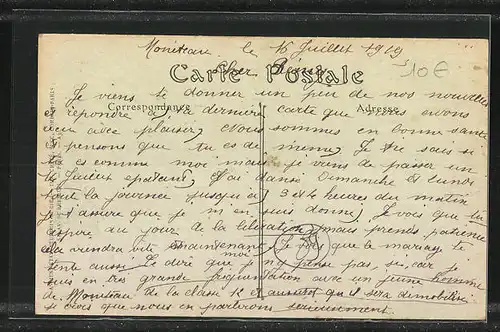 Monéteau, le 16 Juillet 1919
10€
Cher
Carte Postale
Je viens te donner un peu de nos nouvelles
Correspondance
Adresse
et répondre à ta dernière carte que nous avons
avec plaisir, Nous sommes en bonne santé
et pensons que tu es de même, Je ne sais si
tu es comme moi mais je viens de passer un
14 Juillet épatant, J'ai dansé Dimanche et Lundi
toute la journée jusqu'à 3 et 4 heures du matin
Je t'assure que je m'en suis donné, Je vois que tu
au jour de la libération, mais prends patience
cela viendra bite maintenant, que le mariage te
tente aussi, Je dire que moi n'y pense pas, si, car je
suis en très grande fréquentation avec un jeune homme
de Monéteau de la classe 12 et aussitôt qu'il sera démobilisé
je crois que nous en parlerons sérieusement